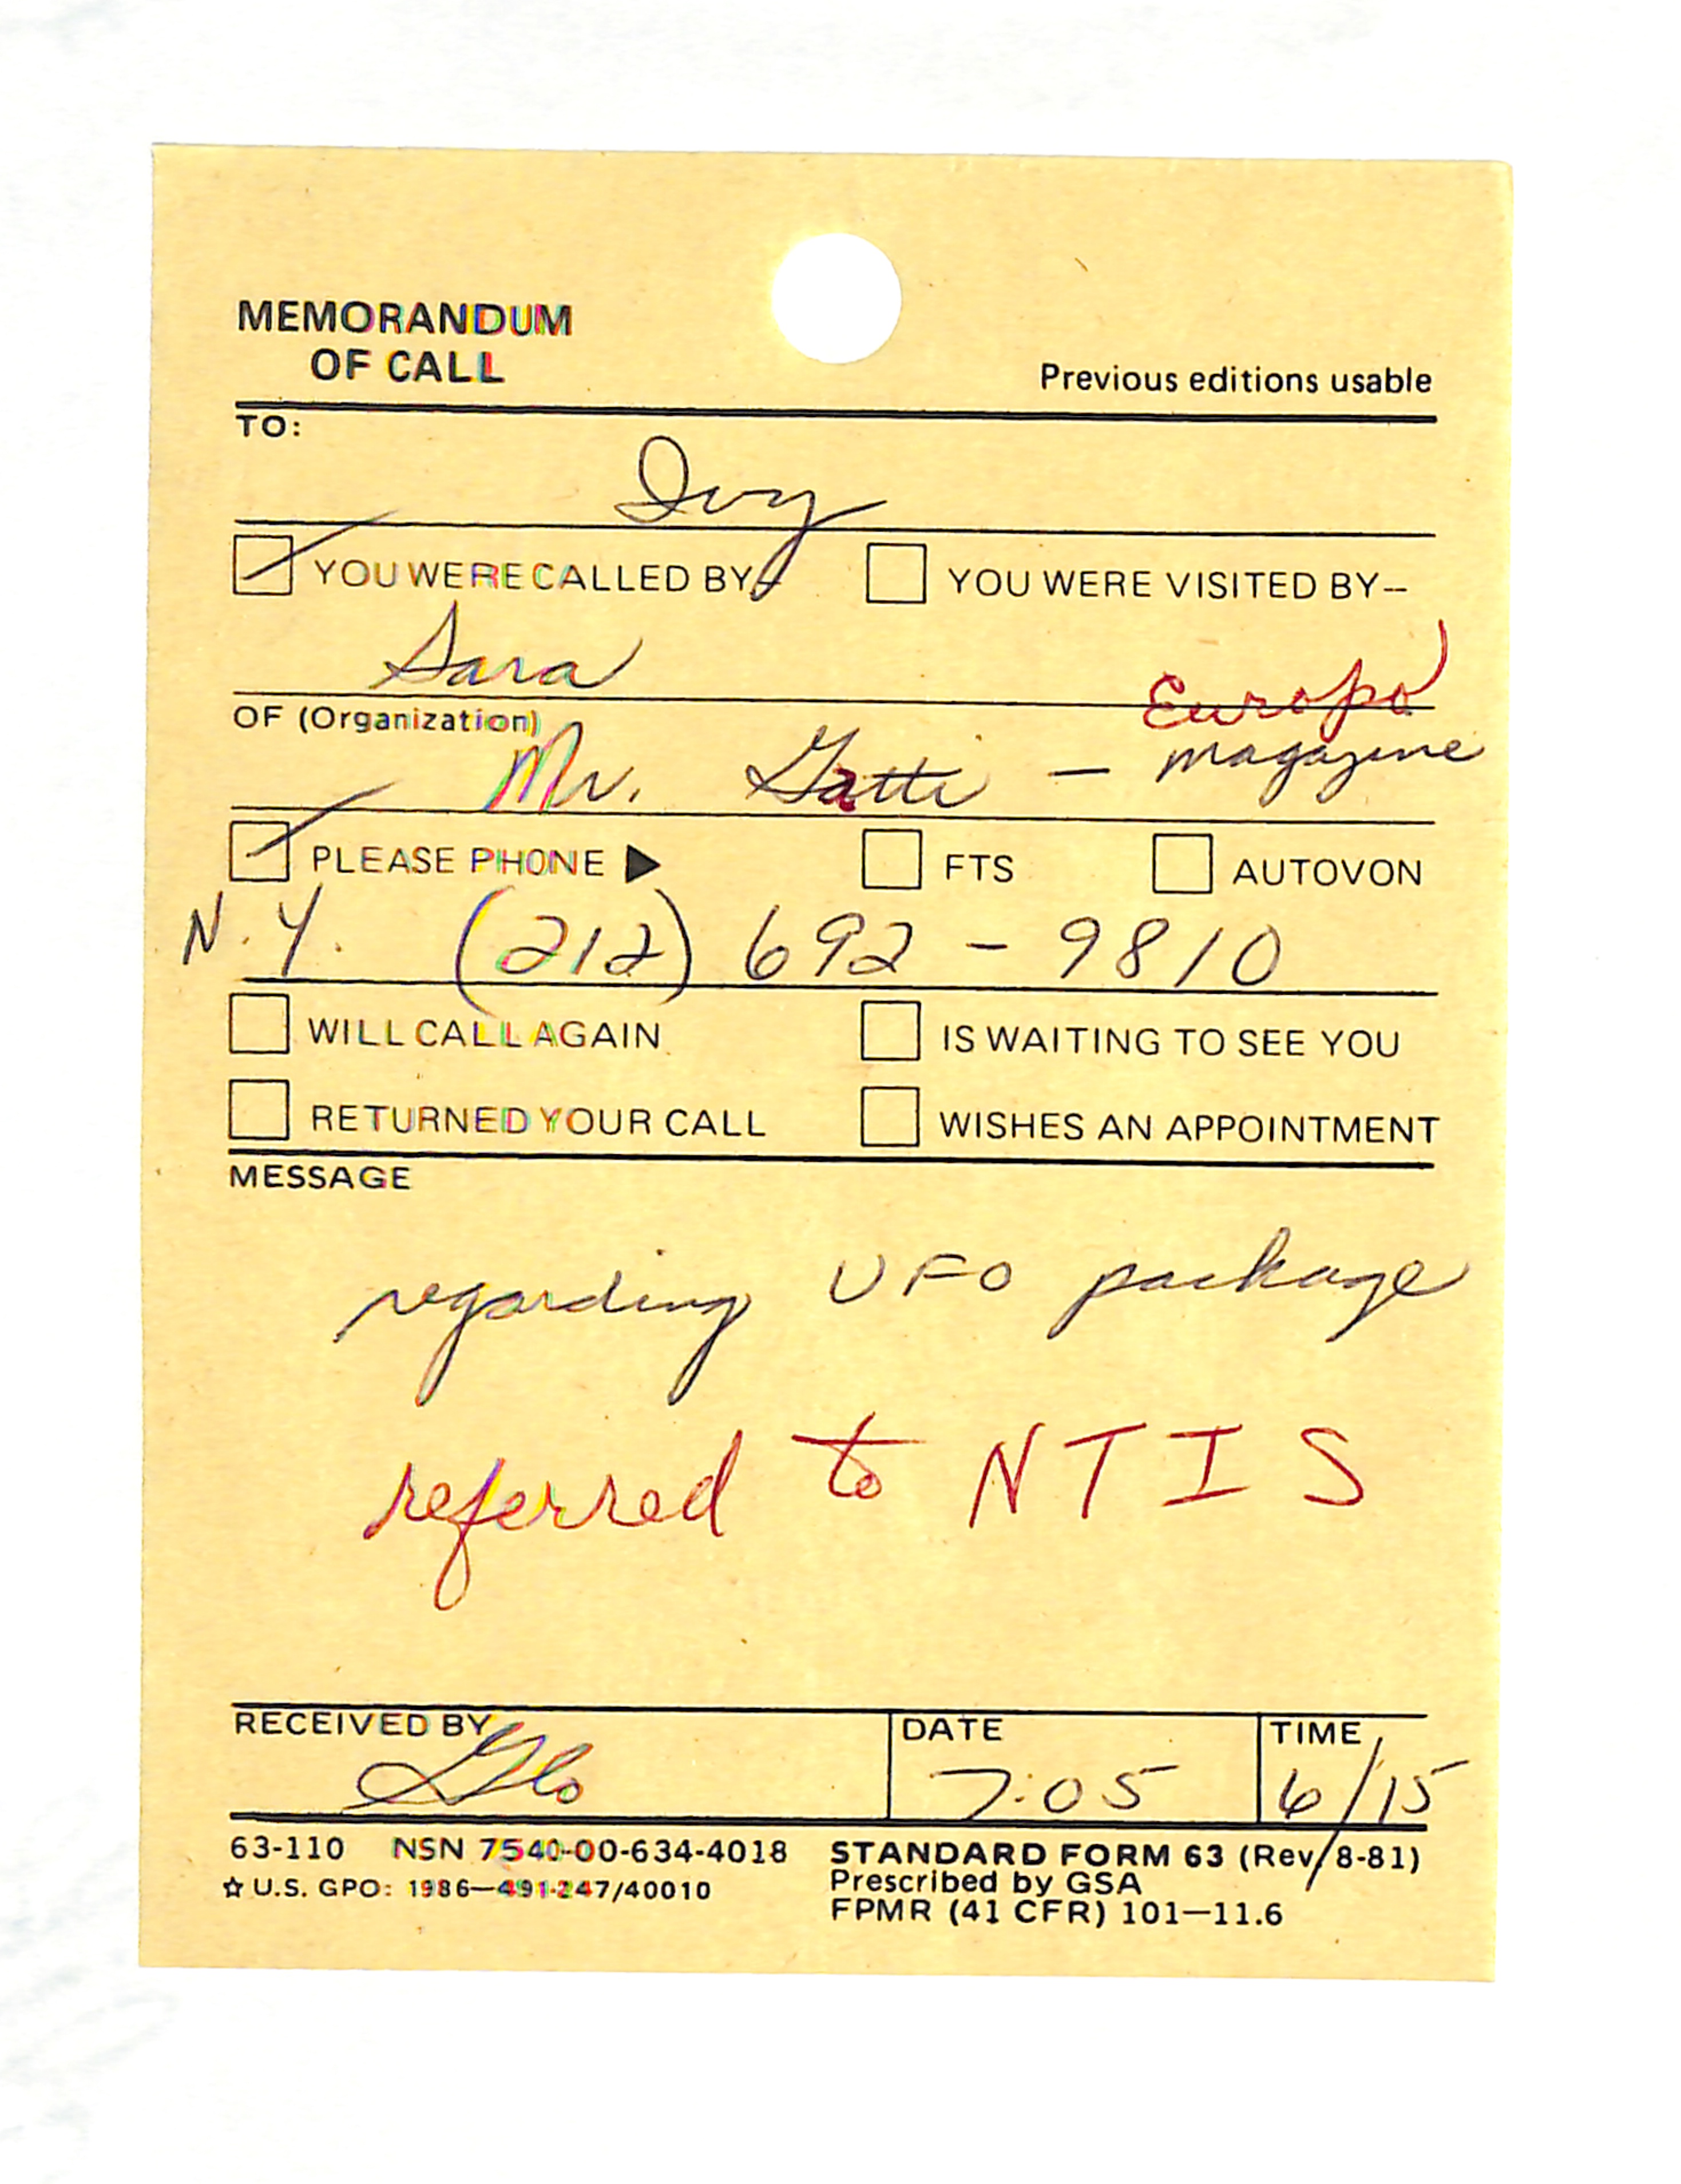 MEMORANDUM
OF CALL
Previous editions usable
TO:
Ivy
YOU WERE CALLED BY- YOU WERE VISITED BY--
Sara
OF (Organization) Europo
Mr. Gatti - magazine
PLEASE PHONE ▶ FTS AUTOVON
N.Y. (212) 692-9810
WILL CALL AGAIN IS WAITING TO SEE YOU
RETURNED YOUR CALL WISHES AN APPOINTMENT
MESSAGE
regarding UFO package
referred to NTIS
RECEIVED BY DATE TIME
Glo 7:05 6/15
63-110 NSN 7540-00-634-4018 STANDARD FORM 63 (Rev. 8-81)
☆ U.S. GPO: 1986—491-247/40010 Prescribed by GSA
FPMR (41 CFR) 101—11.6